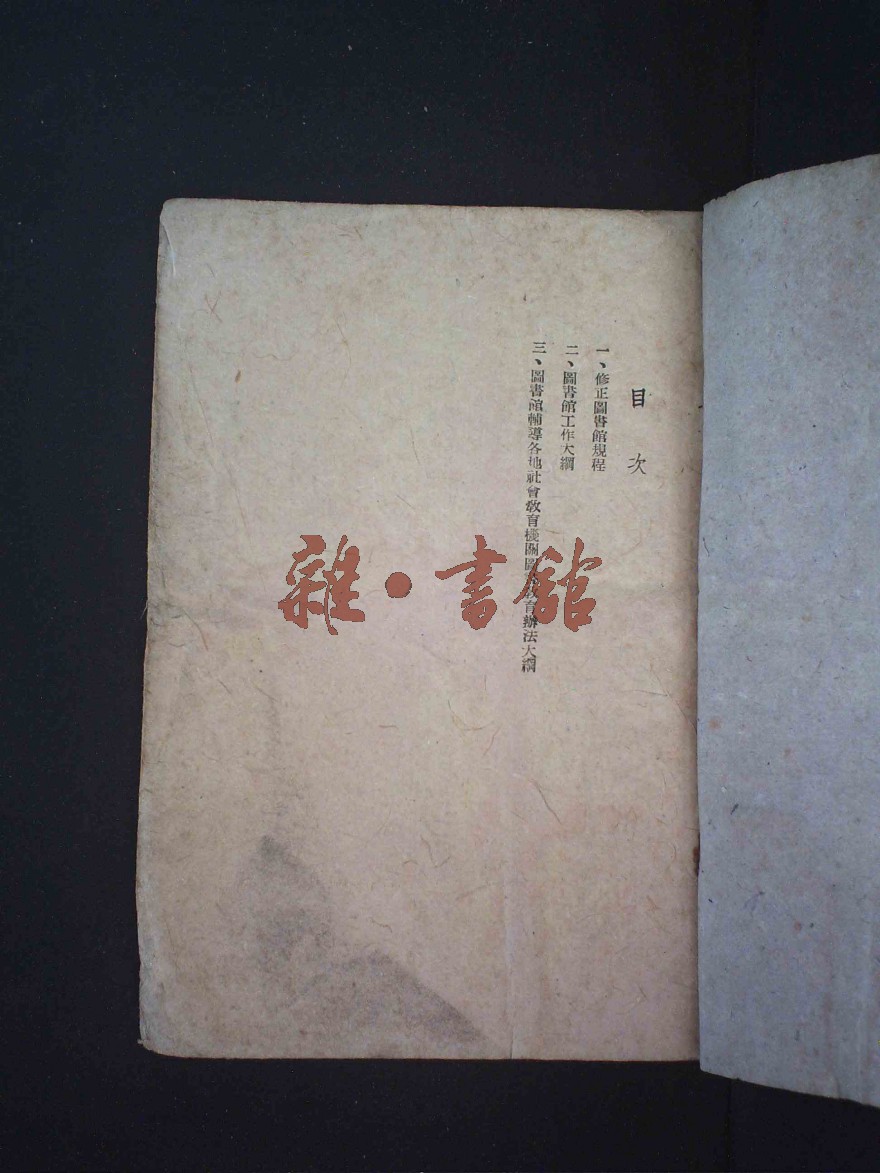 目次
一、修正圖書館規程
二、圖書館工作大綱
三、圖書館輔導各地社會教育機關圖書教育辦法大綱
雜·書館